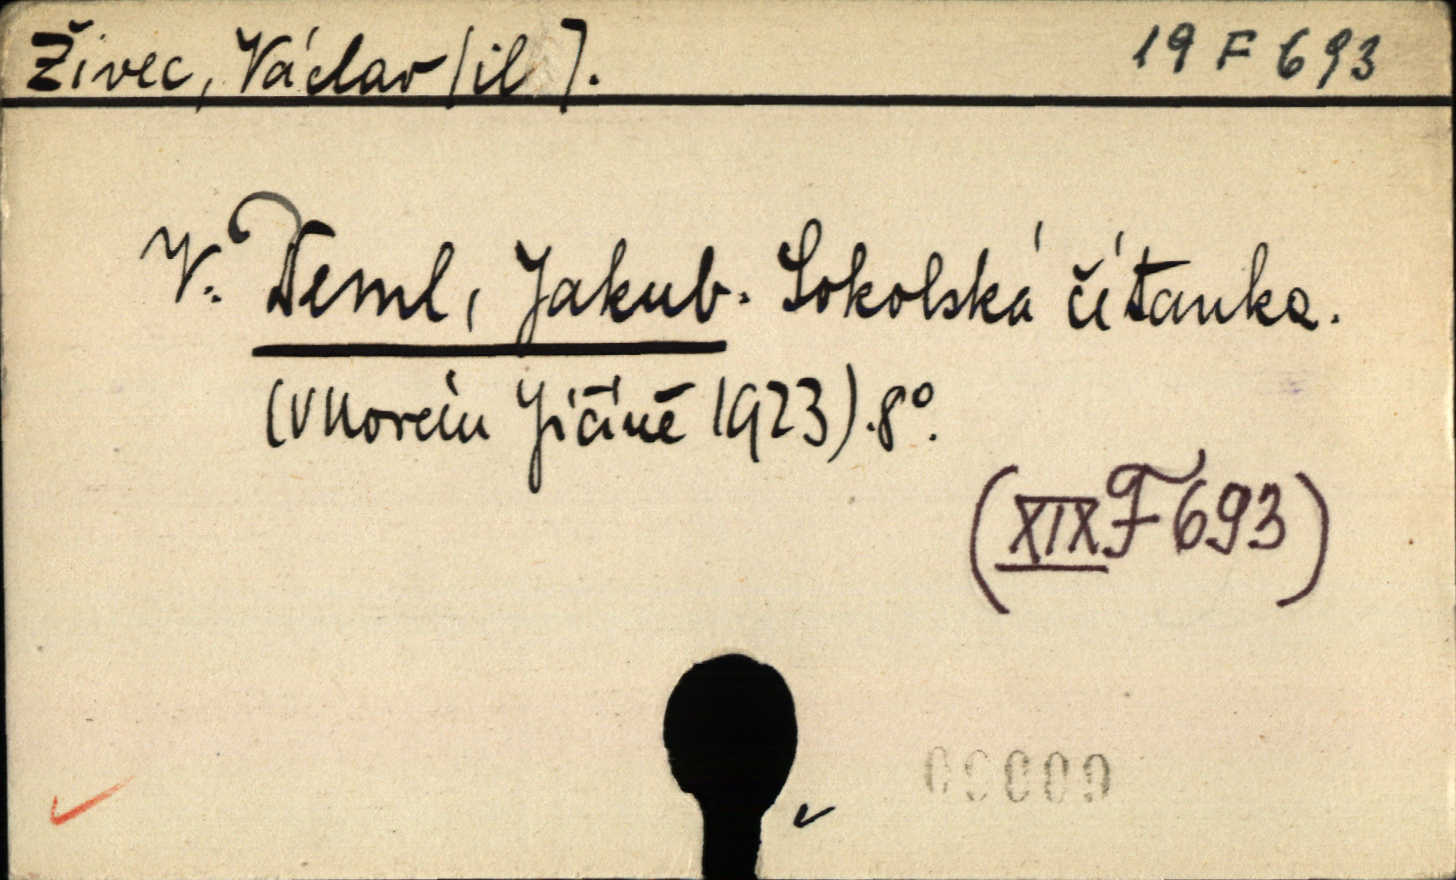 Živec, Václav [il]. 19 F 693
V. Deml, Jakub. Sokolská čítanka.
(V Novém Jičíně 1923). 8°.
(XIX F 693)